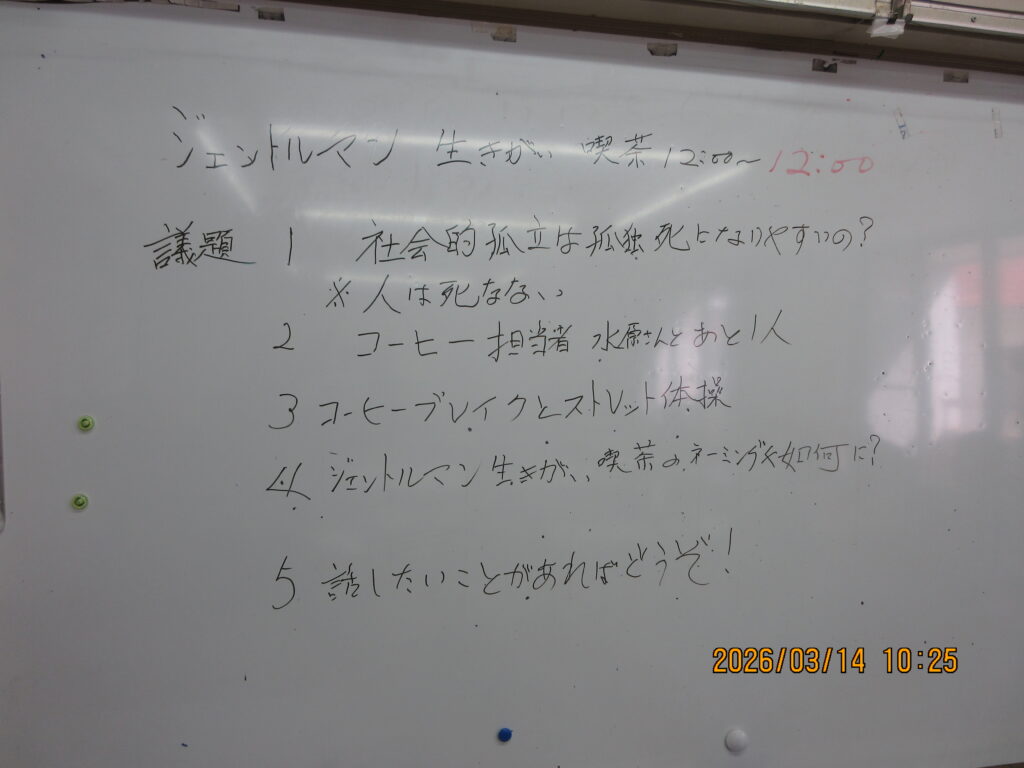 ジェントルマン 生きがい 喫茶 12:00~12:00
議題 1 社会的孤立は孤独死になりやすいの?
※人は死なない
2 コーヒー担当者 水原さんとあと1人
3 コーヒーブレイクとストレット体操
4 ジェントルマン生きがい、喫茶のネーミングや如何に?
5 話したいことがあればどうぞ!
2026/03/14 10:25